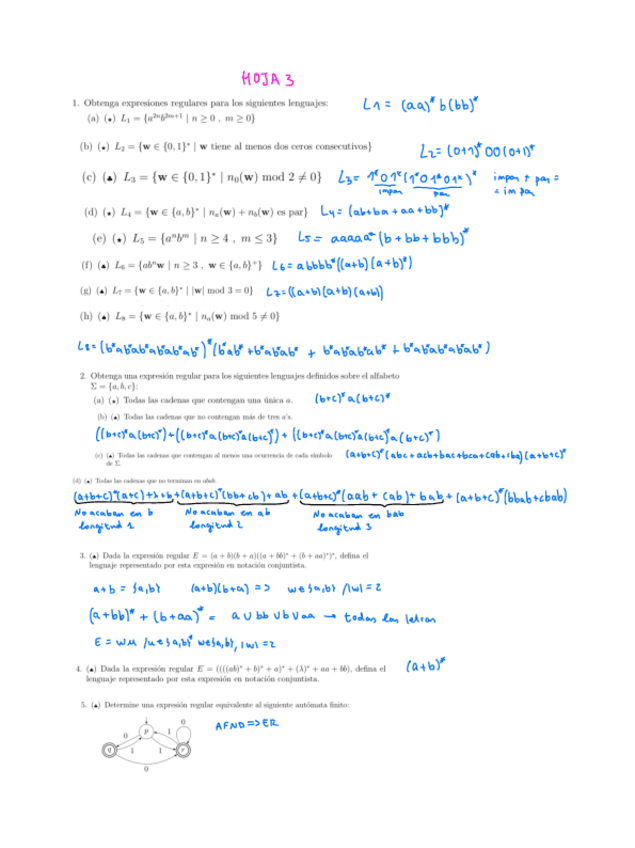 HOJA 3
1. Obtenga expresiones regulares para los siguientes lenguajes: L1 = (aa)* b(bb)*
(a) (⋆) L₁ = {a²ⁿb²ᵐ⁺¹ | n ≥ 0 , m ≥ 0}
(b) (⋆) L₂ = {w ∈ {0,1}* | w tiene al menos dos ceros consecutivos} L2 = (0+1)* 00 (0+1)*
(c) (♣) L₃ = {w ∈ {0,1}* | n₀(w) mod 2 ≠ 0} L3 = 1*01*(1*01*01*)* impar + par =
impar par = impar
(d) (⋆) L₄ = {w ∈ {a,b}* | nₐ(w) + n_b(w) es par} L4 = (ab+ba+aa+bb)*
(e) (⋆) L₅ = {aⁿbᵐ | n ≥ 4 , m ≤ 3} L5 = aaaaa* (b+bb+bbb)*
(f) (▲) L₆ = {abⁿw | n ≥ 3 , w ∈ {a,b}⁺} L6 = abbbb*((a+b)(a+b)*)
(g) (▲) L₇ = {w ∈ {a,b}* | |w| mod 3 = 0} L7 = ((a+b)(a+b)(a+b))
(h) (♠) L₈ = {w ∈ {a,b}* | nₐ(w) mod 5 ≠ 0}
L8 = (b*ab*ab*ab*ab*ab*)*(b*ab* + b*ab*ab* + b*ab*ab*ab* + b*ab*ab*ab*ab*)
2. Obtenga una expresión regular para los siguientes lenguajes definidos sobre el alfabeto
Σ = {a, b, c}:
(a) (⋆) Todas las cadenas que contengan una única a. (b+c)* a (b+c)*
(b) (▲) Todas las cadenas que no contengan más de tres a's.
((b+c)*a(b+c)*)+((b+c)*a(b+c)*a(b+c)*) + ((b+c)*a(b+c)*a(b+c)*a(b+c)*)
(c) (▲) Todas las cadenas que contengan al menos una ocurrencia de cada símbolo (a+b+c)*(abc+acb+bac+bca+cab+cba)(a+b+c)*
de Σ.
(d) (▲) Todas las cadenas que no terminan en abab.
(a+b+c)*(a+c)+λ+b+(a+b+c)*(bb+cb)+ab+(a+b+c)*(aab+cab)+bab+(a+b+c)*(bbab+cbab)
No acaban en b No acaban en ab No acaban en bab
longitud 1 longitud 2 longitud 3
3. (▲) Dada la expresión regular E = (a + b)(b + a)((a + bb)* + (b + aa)*)*, defina el
lenguaje representado por esta expresión en notación conjuntista.
a+b = {a,b} (a+b)(b+a) => w∈{a,b} /|w|=2
(a+bb)* + (b+aa)* = a∪bb∪b∪aa → todas las letras
E = wu /u∈{a,b}* w∈{a,b}, |w|=2
4. (▲) Dada la expresión regular E = ((((ab)* + b)* + a)* + (λ)* + aa + bb), defina el (a+b)*
lenguaje representado por esta expresión en notación conjuntista.
5. (▲) Determine una expresión regular equivalente al siguiente autómata finito:
AFND => ER
0
0 p 1
q 1 1 r
0